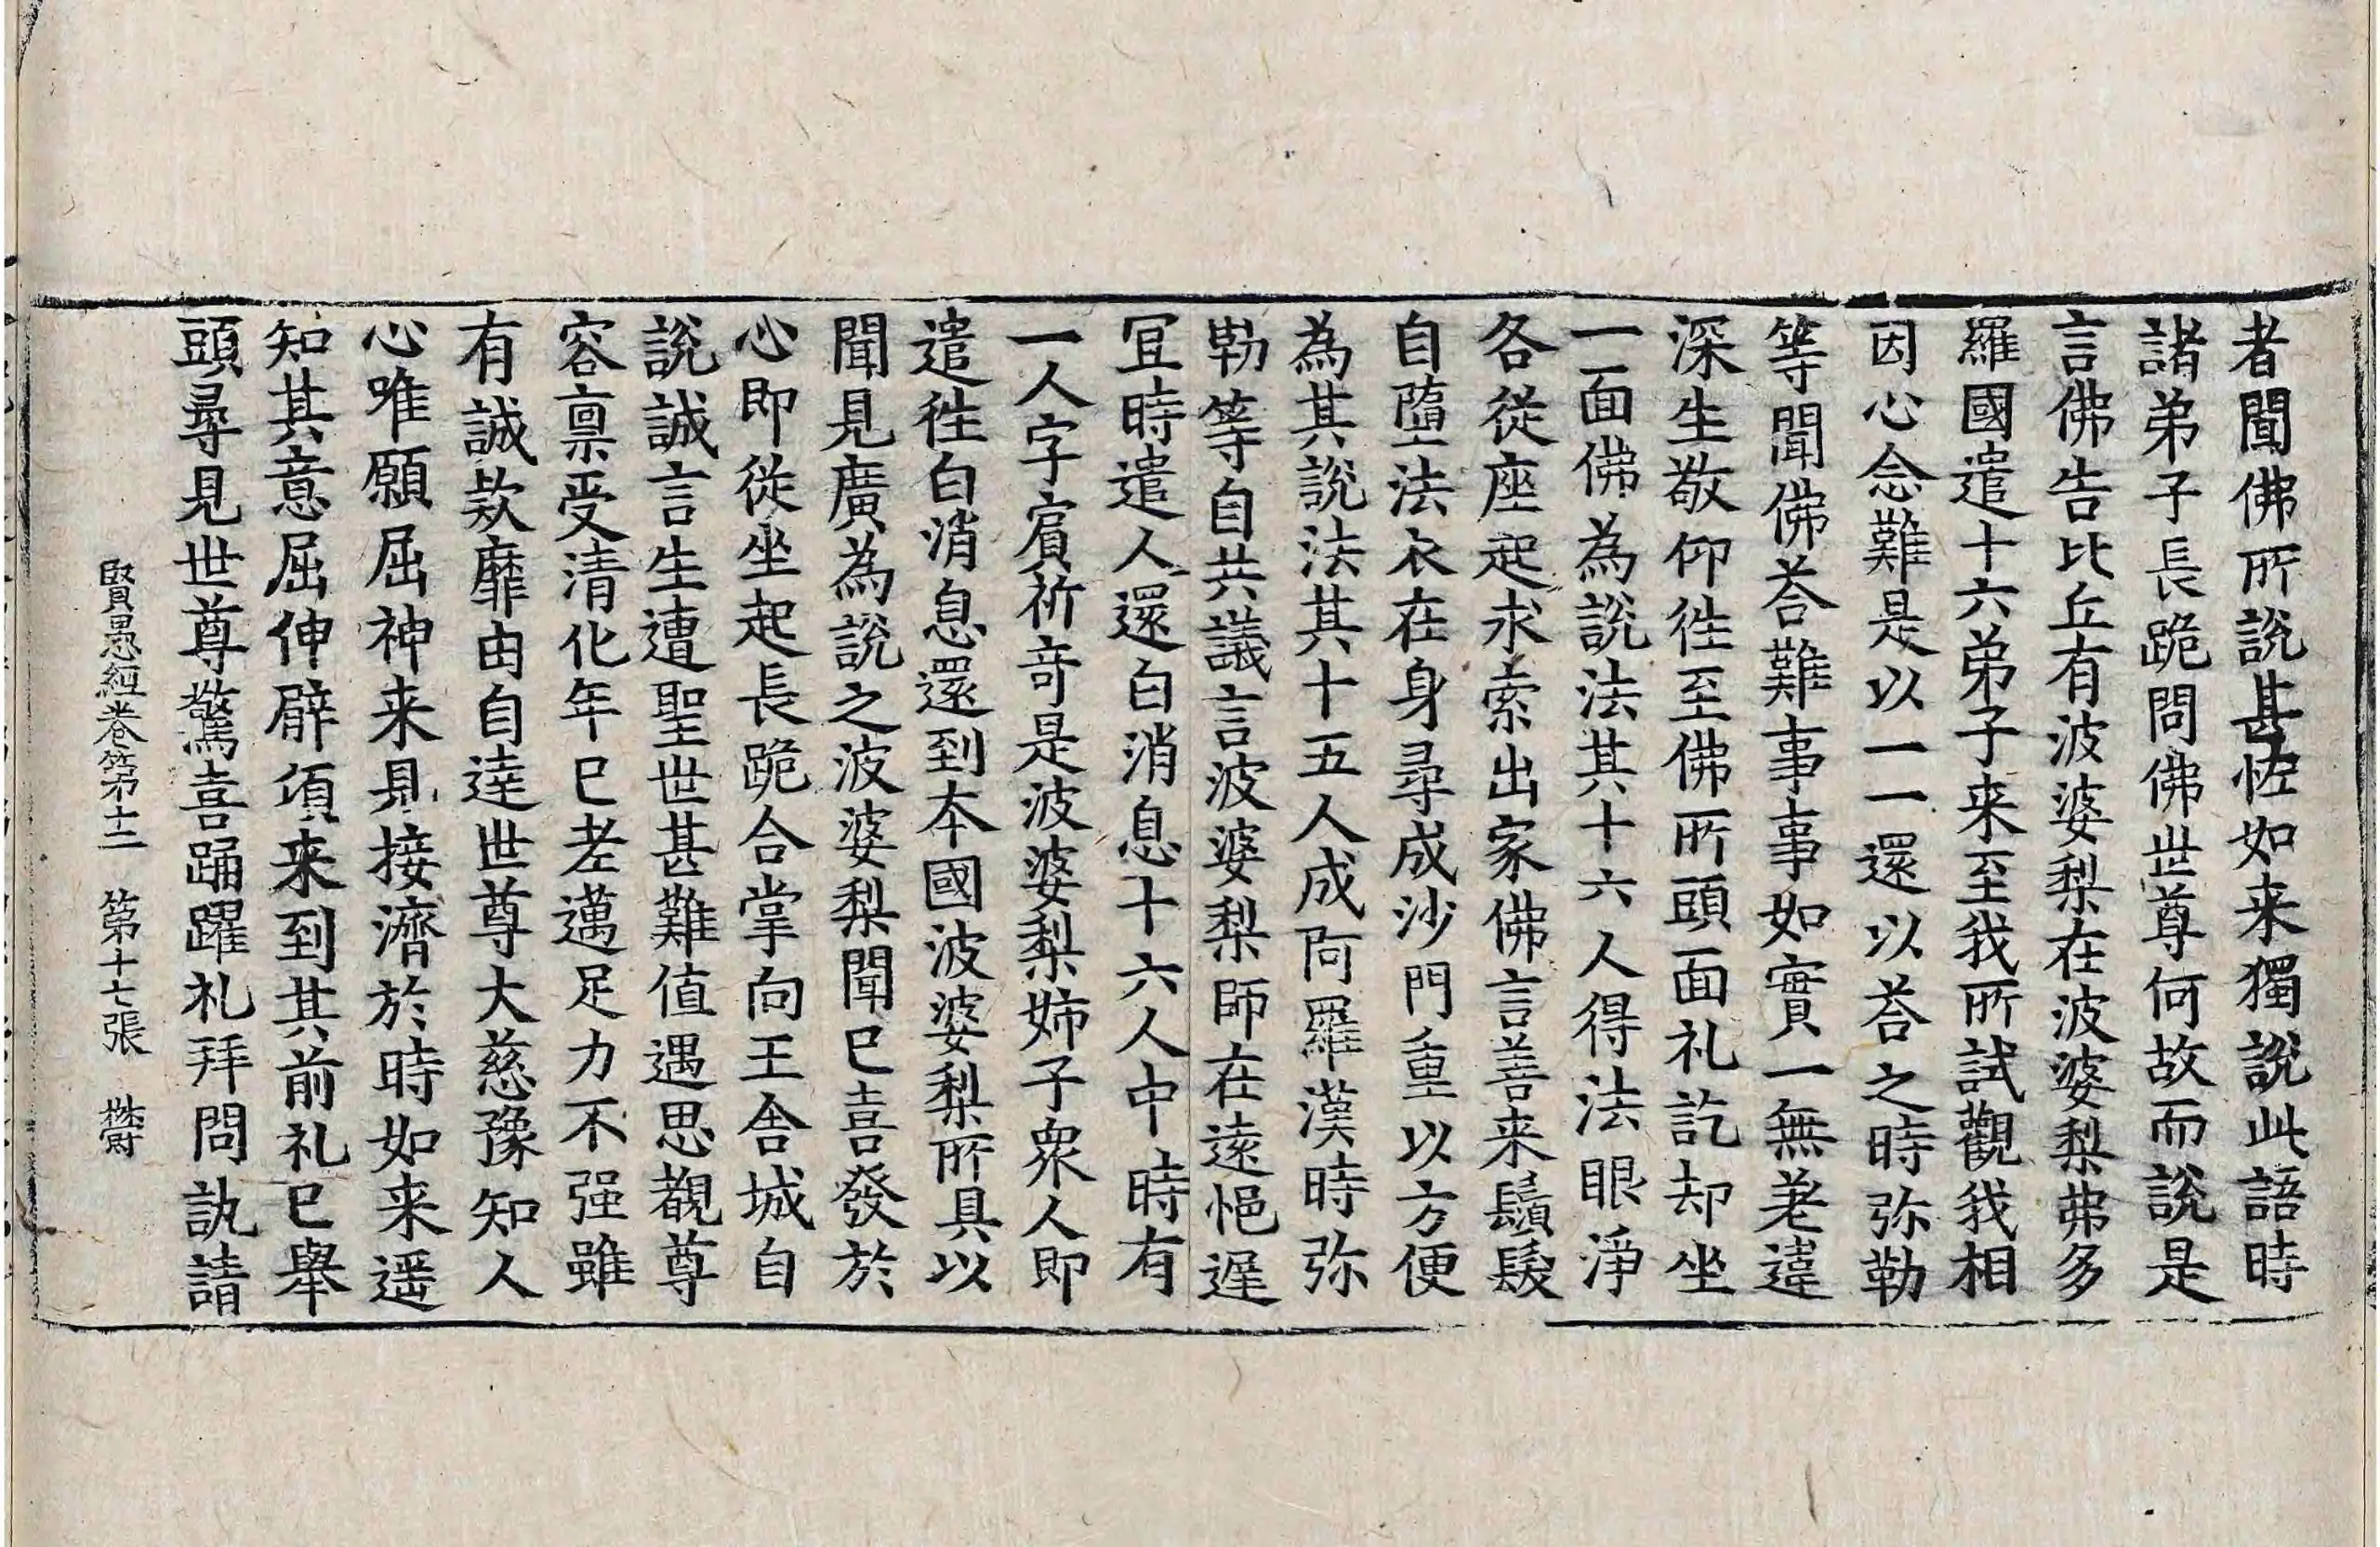 者聞佛所說甚恠如来獨說此語時
諸弟子長跪問佛世尊何故而說是
言佛告比丘有波婆梨在波婆梨弗多
羅國遣十六弟子来至我所試觀我相
因心念難是以一一還以荅之時弥勒
等聞佛荅難事事如實一無差違
深生敬仰徃至佛所頭面礼訖却坐
一面佛為說法其十六人得法眼淨
各從座起求索出家佛言善来鬚髮
自墮法衣在身尋成沙門重以方便
為其說法其十五人成阿羅漢時弥
勒等自共議言波婆梨師在遠悒遲
冝時遣人還白消息十六人中時有
一人字賔祈竒是波婆梨姉子衆人即
遣徃白消息還到本國波婆梨所具以
聞見廣為說之波婆梨聞已喜發於
心即從坐起長跪合掌向王舍城自
說誠言生遭聖世甚難值遇思覩尊
容禀受清化年已老邁足力不强雖
有誠欵靡由自達世尊大慈豫知人
心唯願屈神来見接濟於時如来遥
知其意屈伸臂頃来到其前礼已舉
頭尋見世尊驚喜踊躍礼拜問訊請
賢愚經卷第十二 第十七張 欝